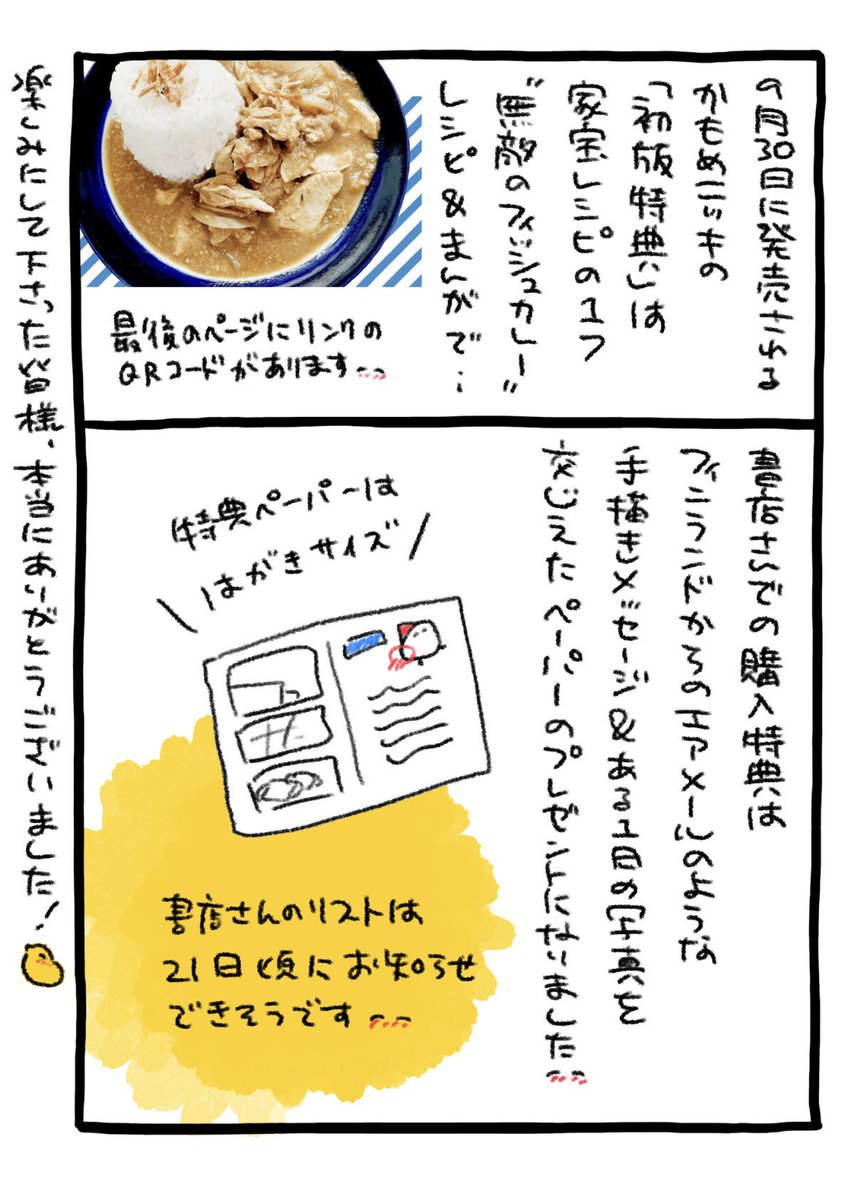 9月30日に発売される
かもめニッキの
「初版特典」は
家宝レシピの1つ
"無敵のフィッシュカレー"
レシピ&まんがで…
最後のページにリンクの
QRコードがあります
書店さんでの購入特典は
フィンランドからのエアメールのような
手描きメッセージ&ある1日の写真を
交じえたペーパーのプレゼントになりました
特典ペーパーは
はがきサイズ
書店さんのリストは
21日頃にお知らせ
できそうです
楽しみにして下さった皆様、本当にありがとうございました!